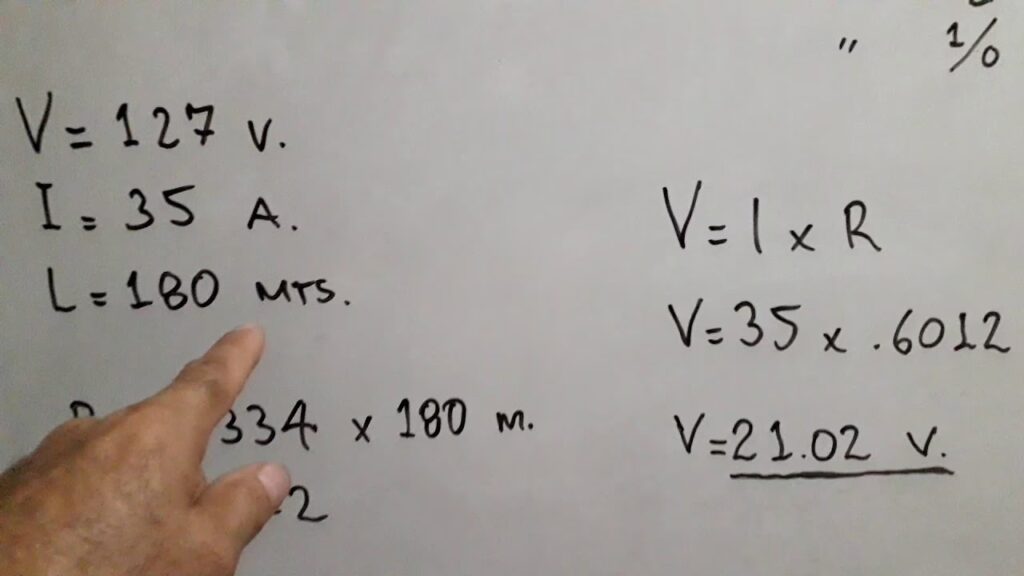 " 1/0
V = 127 V.
I = 35 A.
L = 180 MTS.
334 x 180 m.
2
V = I x R
V = 35 x .6012
V = 21.02 V.